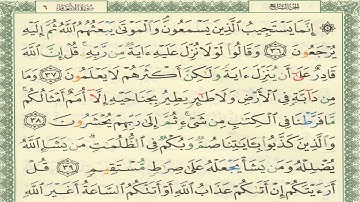 الجزء السابع سورة الأنعام ٦
۞ إِنَّمَا يَسْتَجِيبُ الَّذِينَ يَسْمَعُونَ ۘ وَالْمَوْتَىٰ يَبْعَثُهُمُ اللَّهُ ثُمَّ إِلَيْهِ
يُرْجَعُونَ ٣٦ وَقَالُوا لَوْلَا نُزِّلَ عَلَيْهِ آيَةٌ مِّن رَّبِّهِ ۚ قُلْ إِنَّ اللَّهَ
قَادِرٌ عَلَىٰ أَن يُنَزِّلَ آيَةً وَلَٰكِنَّ أَكْثَرَهُمْ لَا يَعْلَمُونَ ٣٧ وَمَا
مِن دَابَّةٍ فِي الْأَرْضِ وَلَا طَائِرٍ يَطِيرُ بِجَنَاحَيْهِ إِلَّا أُمَمٌ أَمْثَالُكُم ۚ
مَّا فَرَّطْنَا فِي الْكِتَابِ مِن شَيْءٍ ۚ ثُمَّ إِلَىٰ رَبِّهِمْ يُحْشَرُونَ ٣٨
وَالَّذِينَ كَذَّبُوا بِآيَاتِنَا صُمٌّ وَبُكْمٌ فِي الظُّلُمَاتِ ۗ مَن يَشَإِ اللَّهُ
يُضْلِلْهُ وَمَن يَشَأْ يَجْعَلْهُ عَلَىٰ صِرَاطٍ مُّسْتَقِيمٍ ٣٩ قُلْ
أَرَأَيْتَكُمْ إِنْ أَتَاكُمْ عَذَابُ اللَّهِ أَوْ أَتَتْكُمُ السَّاعَةُ أَغَيْرَ اللَّهِ